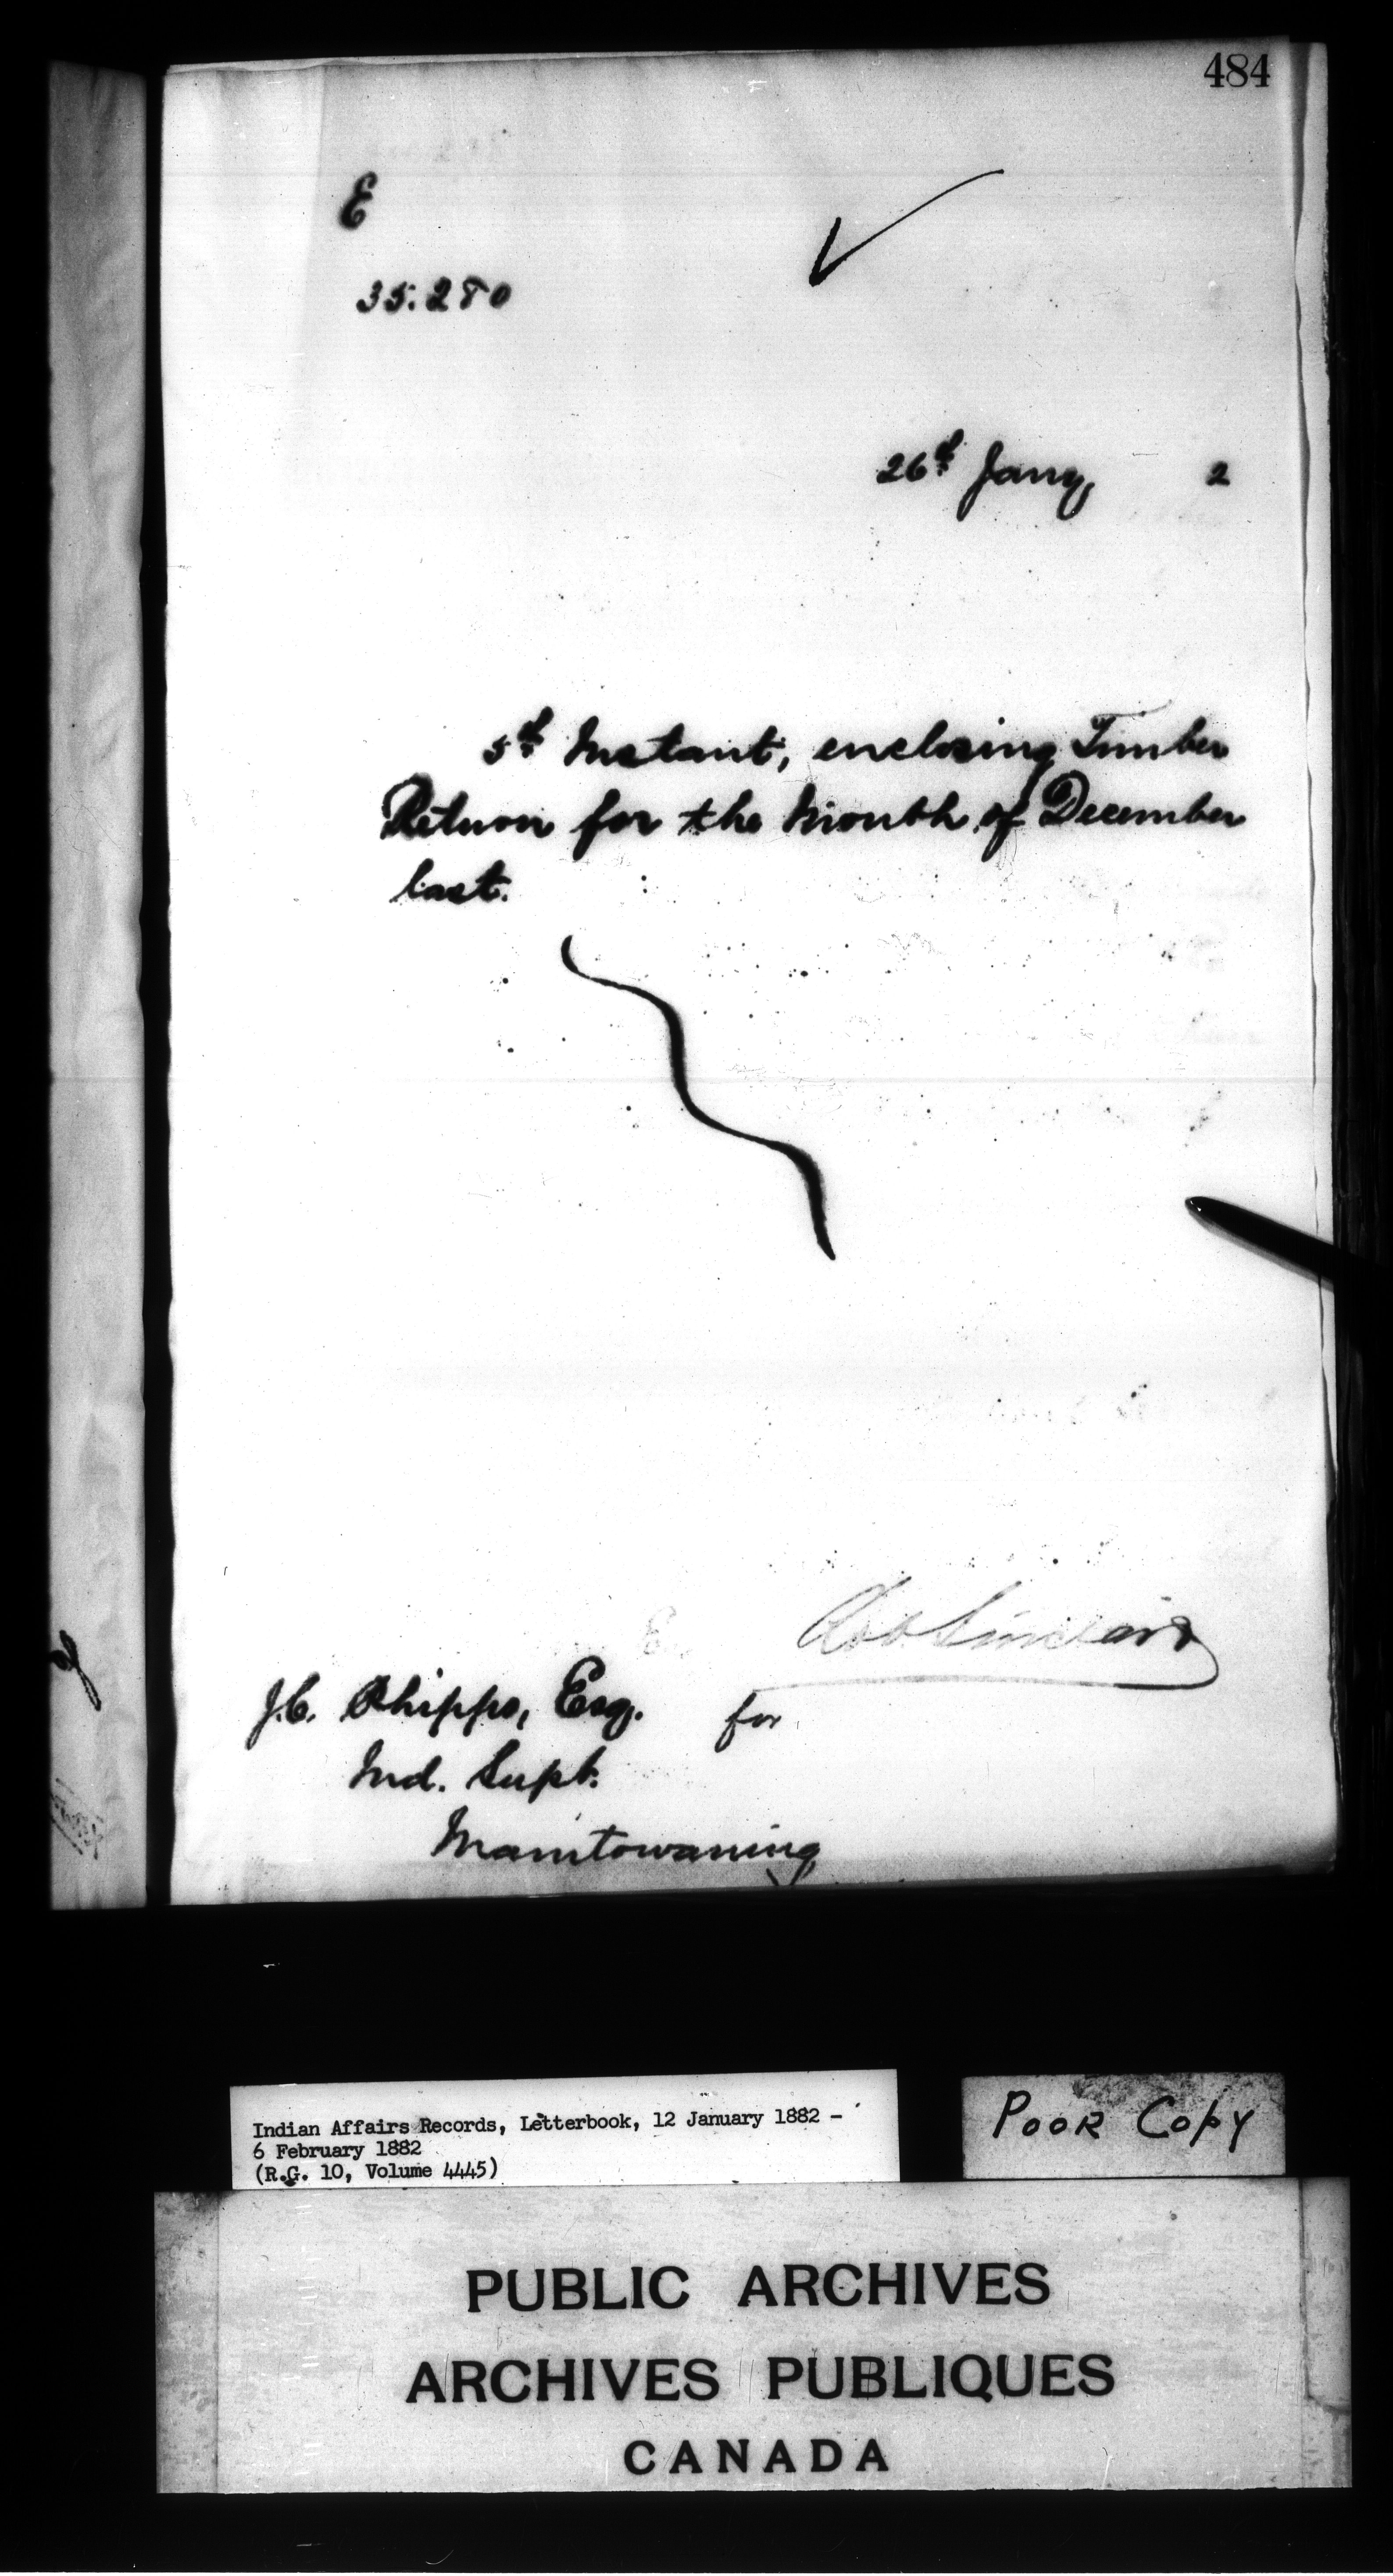 484
E
35.280
26th Jany, 2
5th Instant, enclosing Timber
Return for the Month of December
last.
Rob Sinclair
J.C. Phipps, Esq. for
Ind. Supt.
Manitowaning
Indian Affairs Records, Letterbook, 12 January 1882 -
6 February 1882
(R.G. 10, Volume 4445)
POOR COPY
PUBLIC ARCHIVES
ARCHIVES PUBLIQUES
CANADA